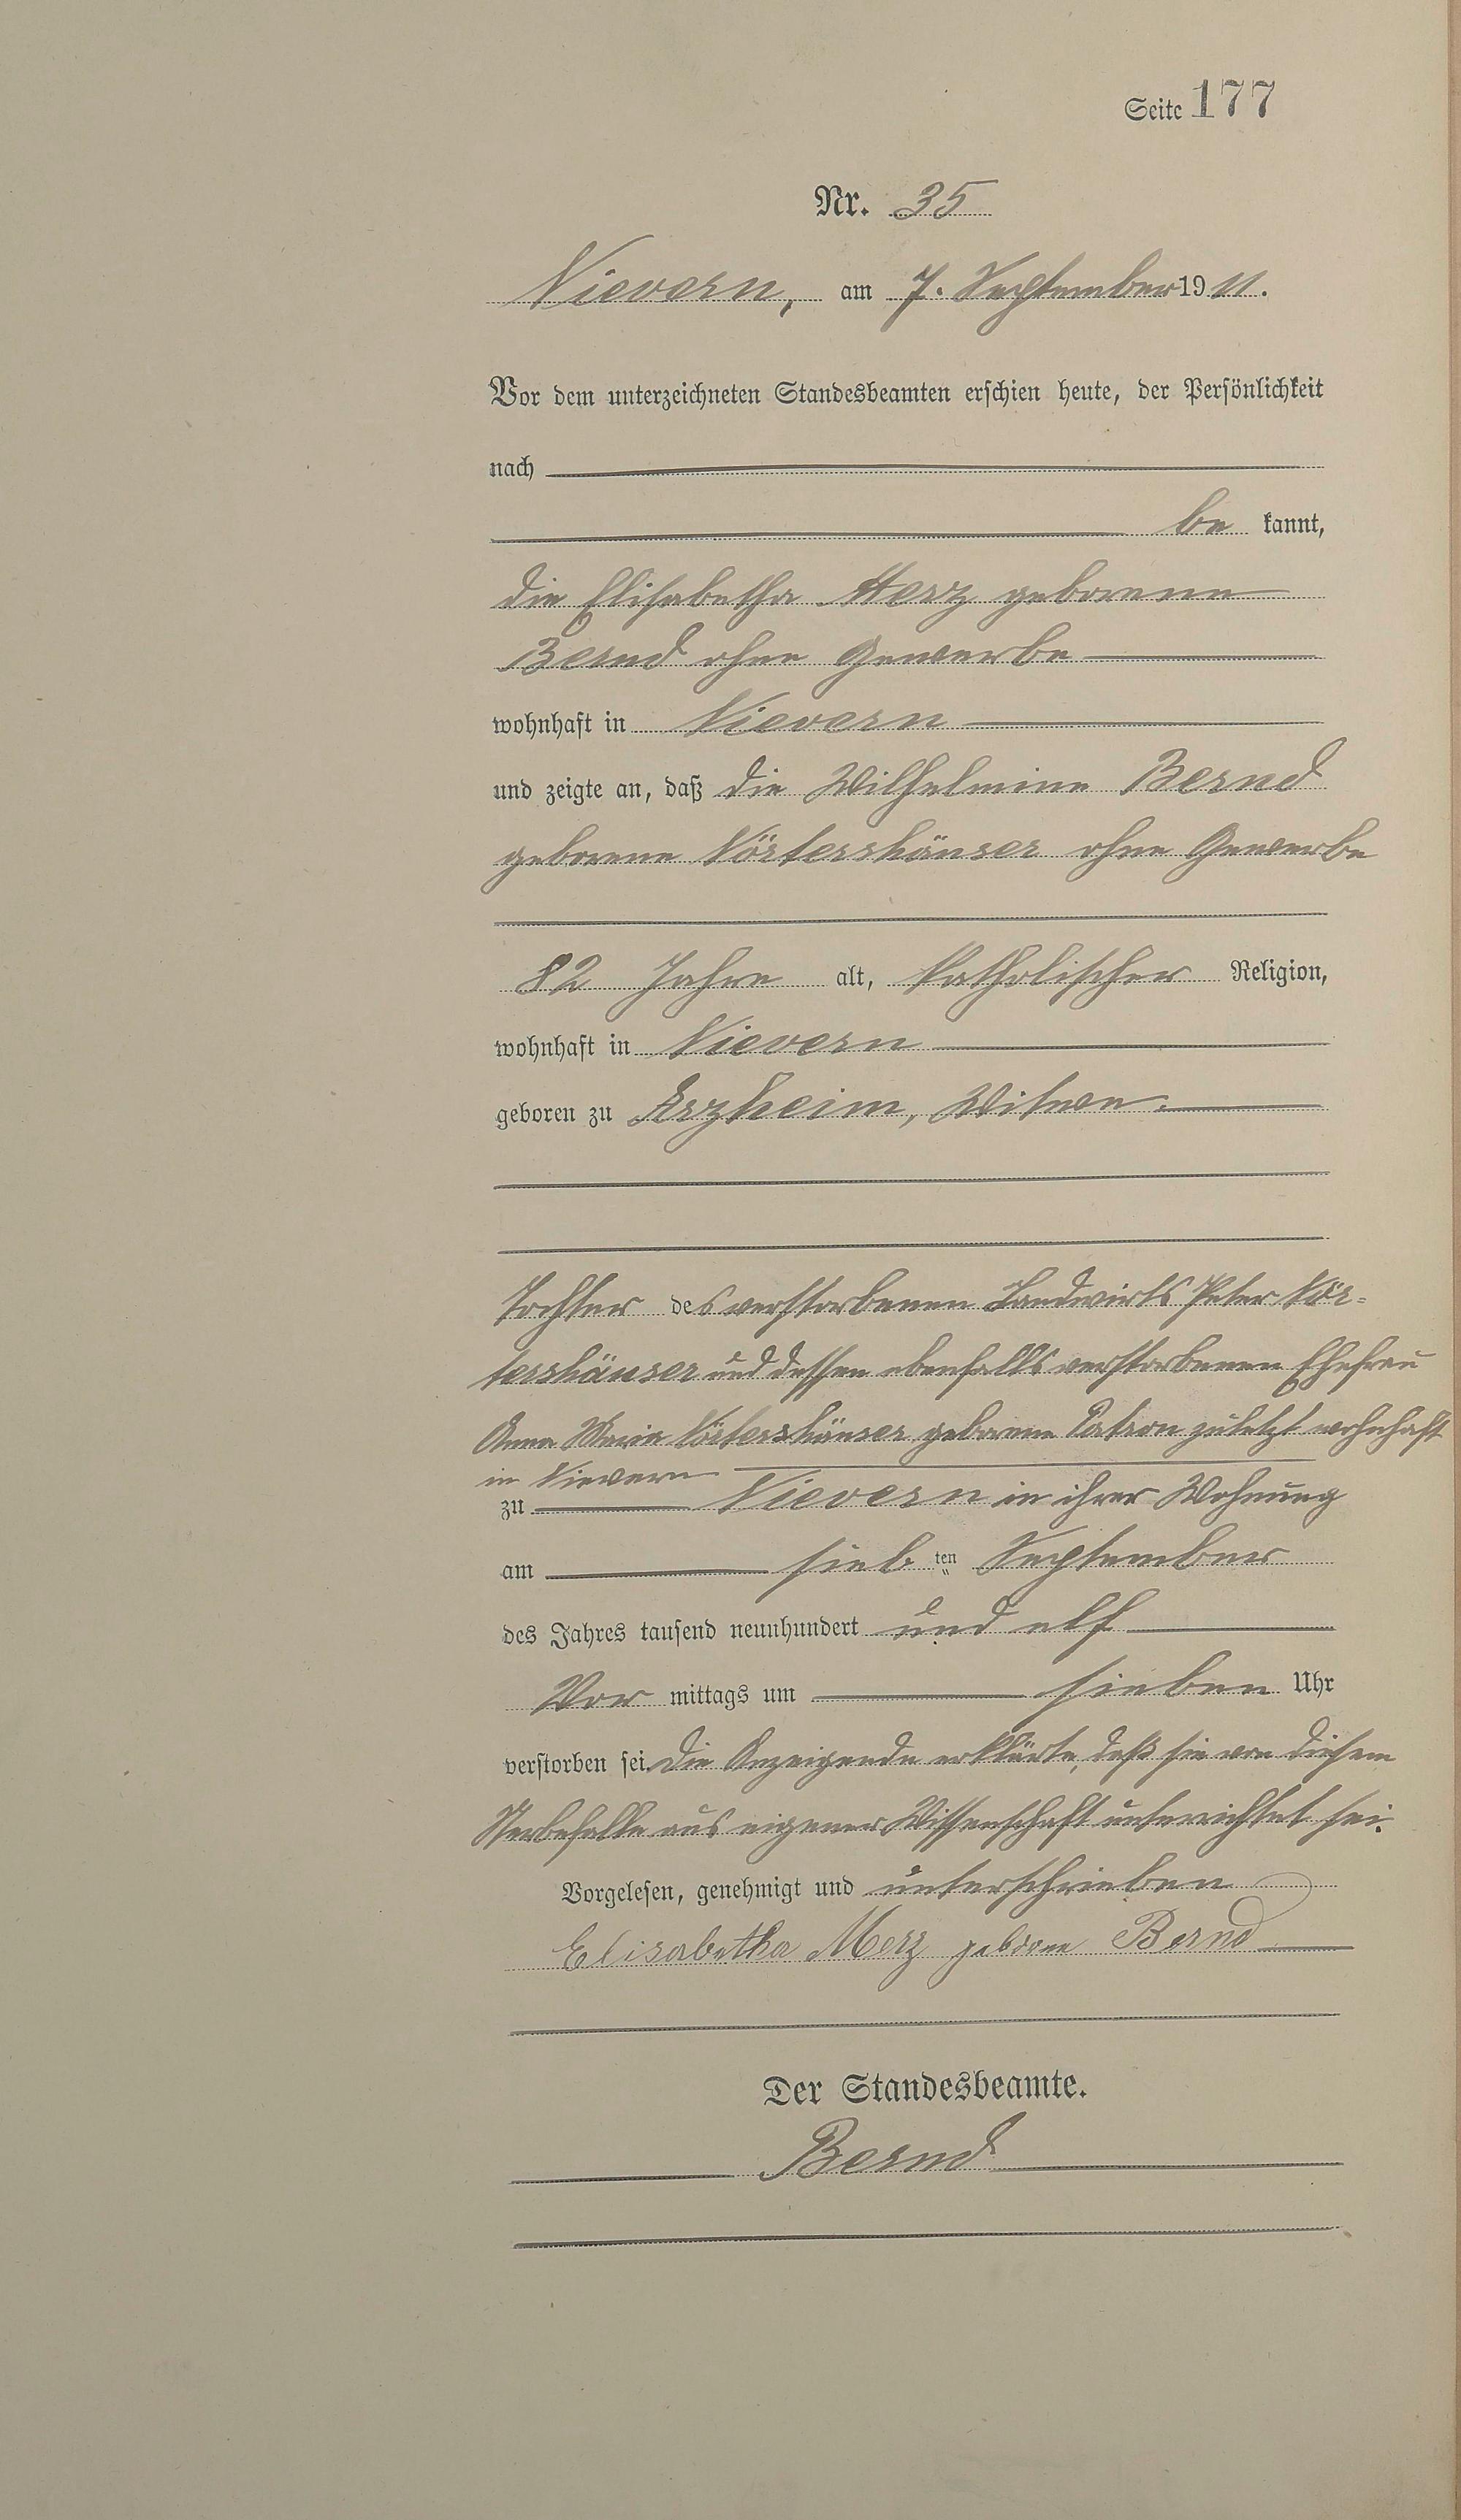 Seite 177
Nr. 35
Nievern, am 7. September 1911.
Vor dem unterzeichneten Standesbeamten erschien heute, der Persönlichkeit
nach
be kannt,
die Elisabetha Merz geborene
Bernd ohne Gewerbe
wohnhaft in Nievern
und zeigte an, daß die Wilhelmine Bernd
geborene Nörtershäuser ohne Gewerbe
82 Jahre alt, katholischer Religion,
wohnhaft in Nievern
geboren zu Arzheim, Witwe.
Tochter des verstorbenen Landwirts Peter Nör-
tershäuser und dessen ebenfalls verstorbenen Ehefrau
Anna Maria Nörtershäuser geborene Patron zuletzt wohnhaft
in Nievern
zu Nievern in ihrer Wohnung
am sieb ten September
des Jahres tausend neunhundert und elf
Vor mittags um sieben Uhr
verstorben sei. Die Anzeigende erklärte, daß sie von diesem
Sterbefalle aus eigener Wissenschaft unterrichtet sei.
Vorgelesen, genehmigt und unterschrieben
Elisabetha Merz geborne Bernd
Der Standesbeamte.
Bernd